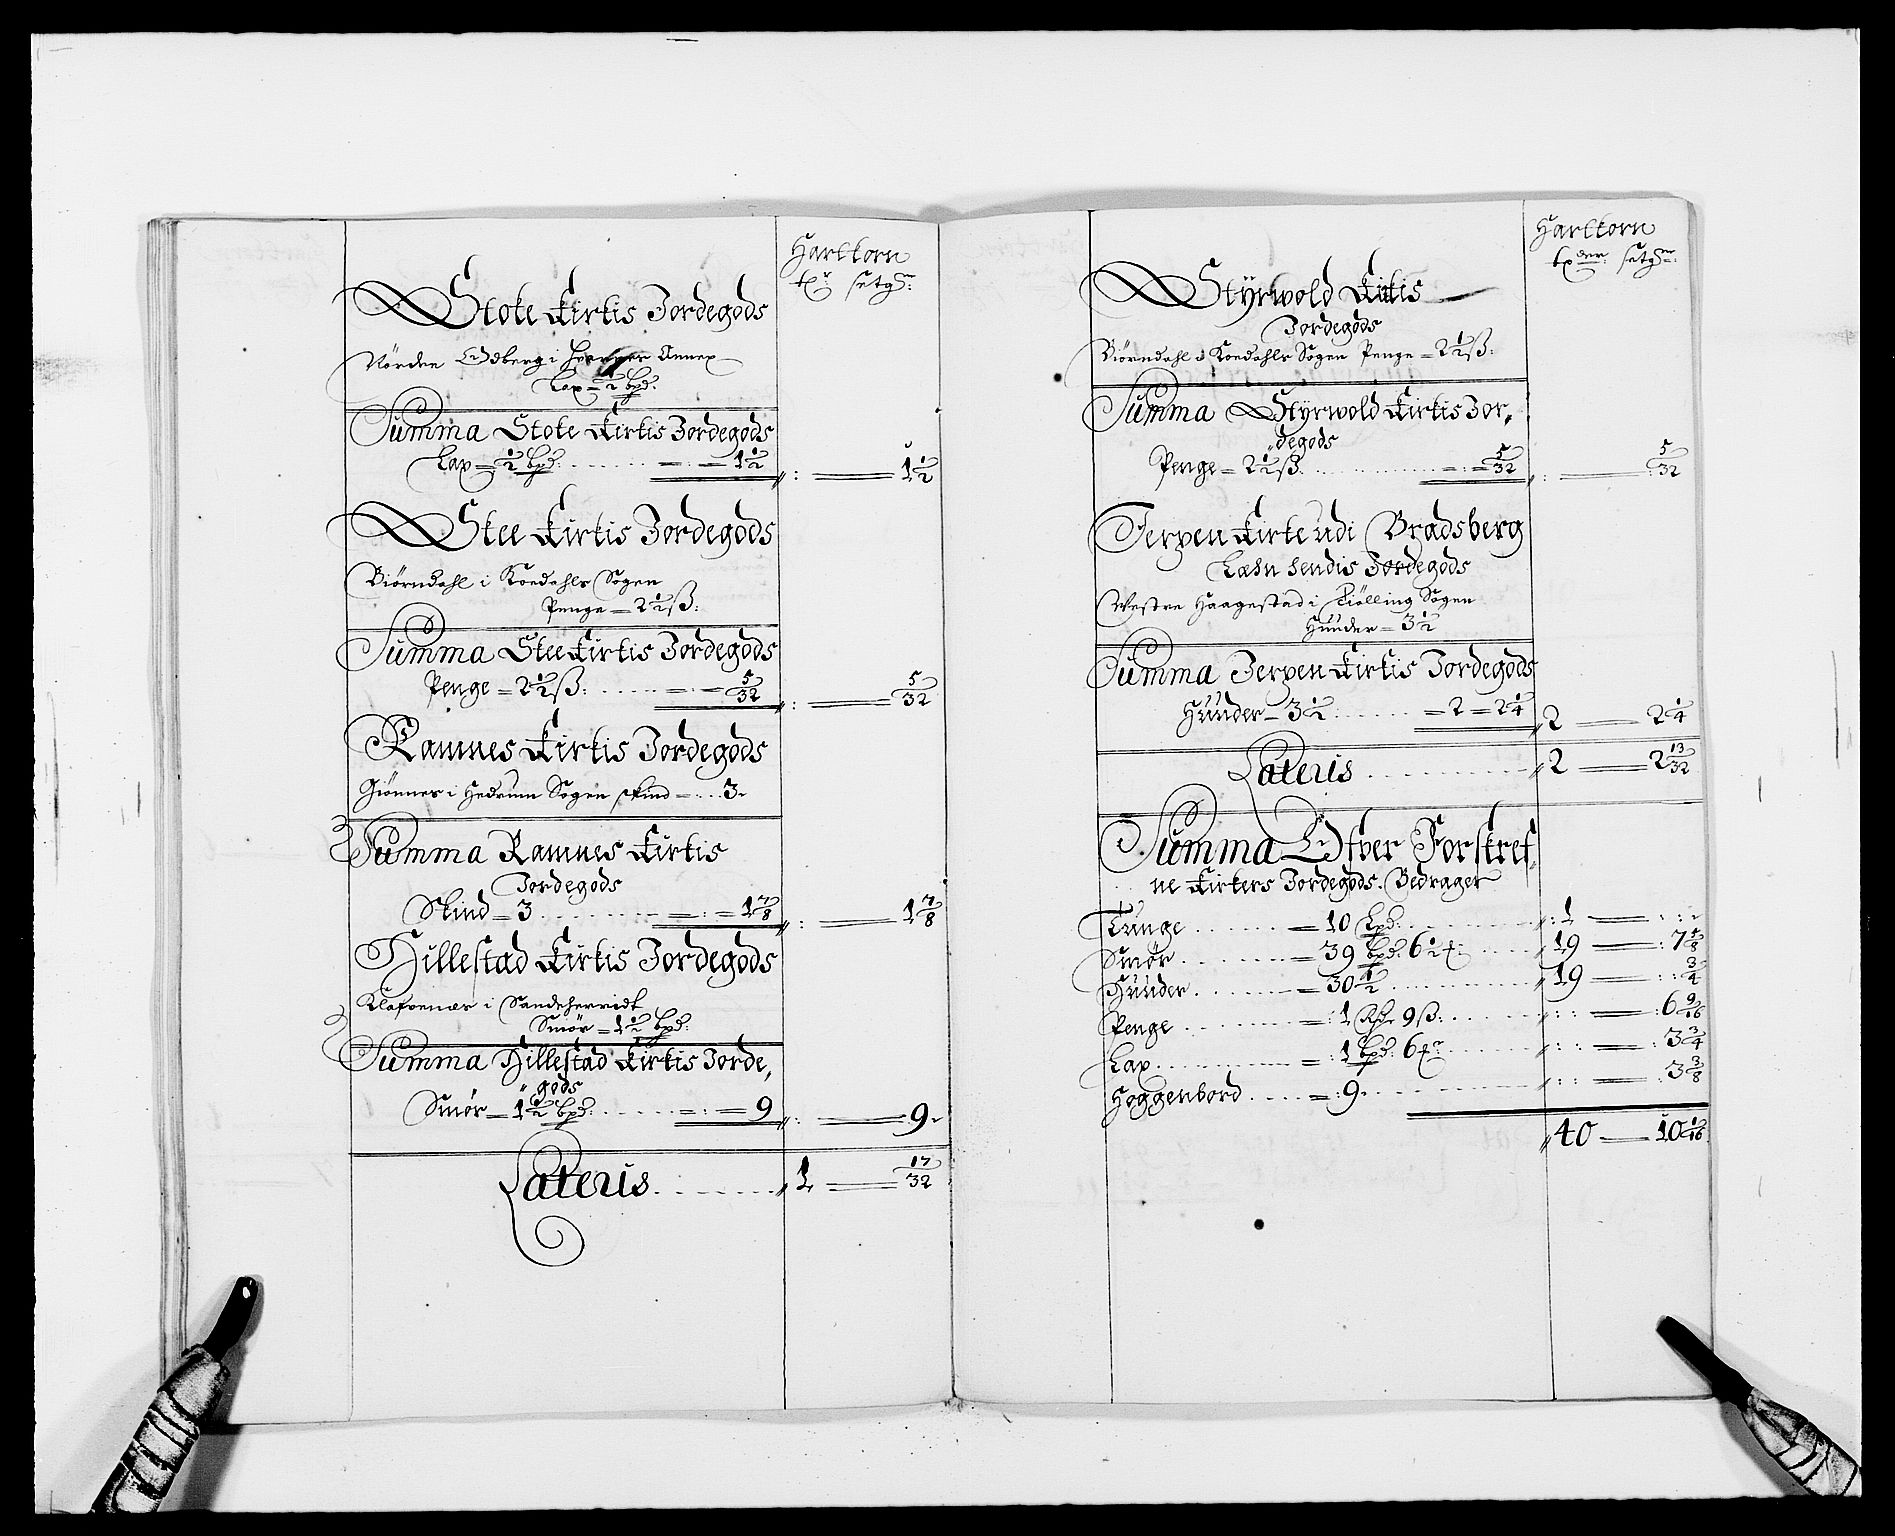 Hartkorn
tr setgn:
Stoke Kirkis Jordegods
Nörden Edberg i Annex
Lax = ½ bpd:
Summa Stoke Kirkis Jordegods
Lax = ½ bpd: = : = 1½ : = 1½
Stee Kirkis Jordegods
Biörndahl i Koedahls Sogen
Penge = 2½ ß:
Summa Stee Kirkis Jordegods
Penge = 2½ ß: = : = 5/32 : = 5/32
Ramnes Kirkis Jordegods
Giönnes i Hedrum Sogen skind = 3
Summa Ramnes Kirkis
Jordegods
Skind = 3 = : = 1 7/8 : = 1 7/8
Hillestad Kirkis Jordegods
Klafvenær i Sandeherridt
Smör = 1½ bpd:
Summa Hillestad Kirkis Jorde,
"gods
Smör = 1½ bpd: = : = 9 : = 9
Lateris 1 = 17/32
Hartkorn
tder: setgn:
Styrwold Kirkis
Jordegods
Biörndahl i Koedahls Sogen Penge = 2½ ß:
Summa Styrwold Kirkis Jor,
"degods
Penge = 2½ ß: = : = 5/32 : = 5/32
Jerpen Kirke udi Bradsberg
Læhn hendis Jordegods
Westre Haagestad i Kiölling Sogen
Huuder = 3½
Summa Jerpen Kirkis Jordegods
Huuder = 3½ = 2 = 2¼ 2 = 2¼
Lateris 2 = 2 13/32
Summa Ofver Forskref,
ne Kirkers Jordegods Bedrager
Tunge = 10 Lpd: : 1 = : :
Smör = 39 bpd: 6½ 19 = : 7 1/8
Huuder = 30½ 19 = : : ¾
Penge = : 1 Rdr 9 ß: : : = : 6 9/16
Lax = : 1 bpd: 6 : : = : 3¾
Hoggenbord = : 9 : : = : 3 3/8
40 = 10 1/16